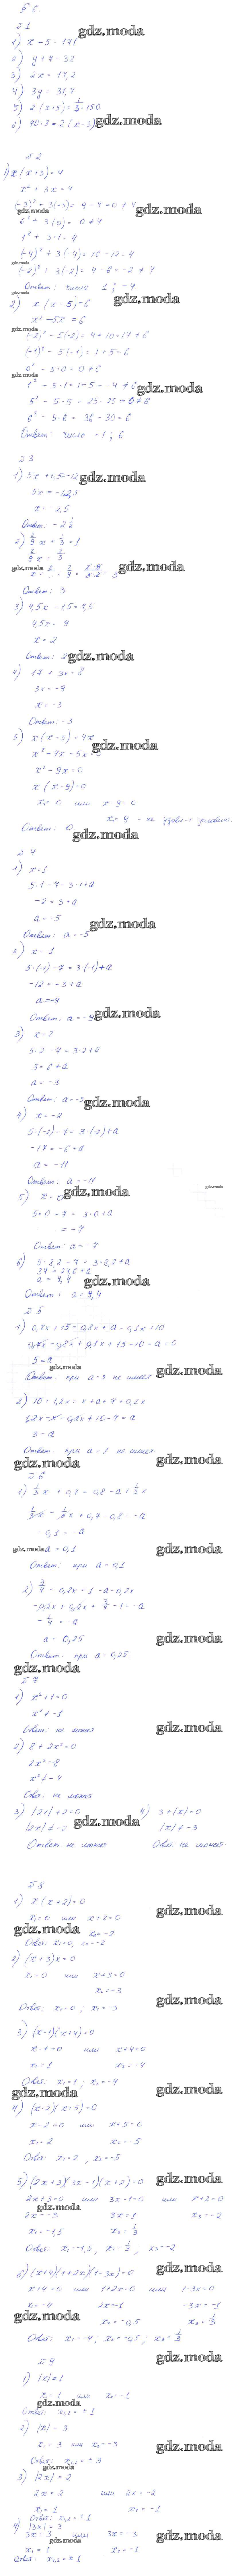 § 6
№ 1
1) x - 5 = 171
2) y + 7 = 32
3) 2x = 17,2
4) 3y = 31,7
5) 2(x+5) = 1/3 · 150
6) 90 = 3 · 2(x-3)
gdz.moda
№ 2
1) x(x+3) = 4
x² + 3x = 4
(-3)² + 3(-3) = 9 - 9 = 0 ≠ 4
0² + 3(0) = 0 ≠ 4
1² + 3·1 = 4
(-4)² + 3(-4) = 16 - 12 = 4
(-2)² + 3(-2) = 4 - 6 = -2 ≠ 4
Ответ: числа 1; -4
2) x(x-5) = 6
x² - 5x = 6
(-2)² - 5(-2) = 4 + 10 = 14 ≠ 6
(-1)² - 5(-1) = 1 + 5 = 6
0² - 5·0 = 0 ≠ 6
1² - 5·1 = 1 - 5 = -4 ≠ 6
5² - 5·5 = 25 - 25 = 0 ≠ 6
6² - 5·6 = 36 - 30 = 6
Ответ: числа -1; 6
№ 3
1) 5x + 0,5 = -12
5x = -12,5
x = -2,5
Ответ: -2 1/2
2) 2/9 x + 1/3 = 1
2/9 x = 2/3
Ответ: 3
3) 4,5x - 1,5 = 7,5
4,5x = 9
x = 2
Ответ: 2
4) 17 + 3x = 8
3x = -9
x = -3
Ответ: -3
5) x(x-5) = 4x
x² - 4x - 5x = 0
x² - 9x = 0
x(x-9) = 0
x₁ = 0 или x-9 = 0
x₂ = 9 - не удовл-т условию
Ответ: 0
№ 4
1) x = 1
5·1 - 7 = 3·1 + a
-2 = 3 + a
a = -5
Ответ: a = -5
2) x = -1
5·(-1) - 7 = 3·(-1) + a
-12 = -3 + a
a = -9
Ответ: a = -9
3) x = 2
5·2 - 7 = 3·2 + a
3 = 6 + a
a = -3
Ответ: a = -3
4) x = -2
5·(-2) - 7 = 3·(-2) + a
-17 = -6 + a
a = -11
Ответ: a = -11
5) x = 0
5·0 - 7 = 3·0 + a
= -7
Ответ: a = -7
6) 5·8,2 - 7 = 3·8,2 + a
34 = 24,6 + a
a = 9,4
Ответ: a = 9,4
№ 5
1) 0,7x + 15 = 0,8x + a - 0,1x + 10
0,7x - 0,8x + 0,1x + 15 - 10 - a = 0
5 = a
Ответ: при a = 5 не имеет
2) 10 + 1,2x = x + a + 7 + 0,2x
1,2x - x - 0,2x + 10 - 7 = a
3 = a
№ 6
1) 1/3 x + 0,7 = 0,8 - a + 1/3 x
1/3 x - 1/3 x + 0,7 - 0,8 = -a
-0,1 = -a
a = 0,1
Ответ: при a = 0,1
2) 3/4 - 0,2x = 1 - a - 0,2x
-0,2x + 0,2x + 3/4 - 1 = -a
-1/4 = -a
a = 0,25
Ответ: при a = 0,25.
№ 7
1) x² + 1 = 0
x² ≠ -1
Ответ: не может
2) 8 + 2x² = 0
2x² = -8
x² ≠ -4
Ответ: не может
3) |2x| + 2 = 0
|2x| ≠ -2
Ответ не может
4) 3 + |x| = 0
|x| ≠ -3
Ответ: не может.
№ 8
1) x(x+2) = 0
x₁ = 0 или x+2 = 0
x₂ = -2
Ответ: x₁ = 0, x₂ = -2
2) (x+3)x = 0
x₁ = 0 или x+3 = 0
x₂ = -3
Ответ: x₁ = 0; x₂ = -3
3) (x-1)(x+4) = 0
x-1 = 0 или x+4 = 0
x₁ = 1 x₂ = -4
Ответ: x₁ = 1; x₂ = -4
4) (x-2)(x+5) = 0
x-2 = 0 или x+5 = 0
x₁ = 2 x₂ = -5
Ответ: x₁ = 2, x₂ = -5
5) (2x+3)(3x-1)(x+2) = 0
2x+3 = 0 или 3x-1 = 0 или x+2 = 0
2x = -3 3x = 1 x₃ = -2
x₁ = -1,5 x₂ = 1/3
Ответ: x₁ = -1,5, x₂ = 1/3, x₃ = -2
6) (x+4)(1+2x)(1-3x) = 0
x+4 = 0 или 1+2x = 0 или 1-3x = 0
x₁ = -4 2x = -1 -3x = -1
x₂ = -0,5 x₃ = 1/3
Ответ: x₁ = -4, x₂ = -0,5; x₃ = 1/3
№ 9
1) |x| = 1
x₁ = 1 или x₂ = -1
Ответ: x₁,₂ = ±1
2) |x| = 3
x₁ = 3 или x₂ = -3
Ответ: x₁,₂ = ±3
3) |2x| = 2
2x = 2 или 2x = -2
x₁ = 1 x₂ = -1
Ответ: x₁,₂ = ±1
4) |3x| = 3
3x = 3 или 3x = -3
x₁ = 1 x₂ = -1
Ответ: x₁,₂ = ±1